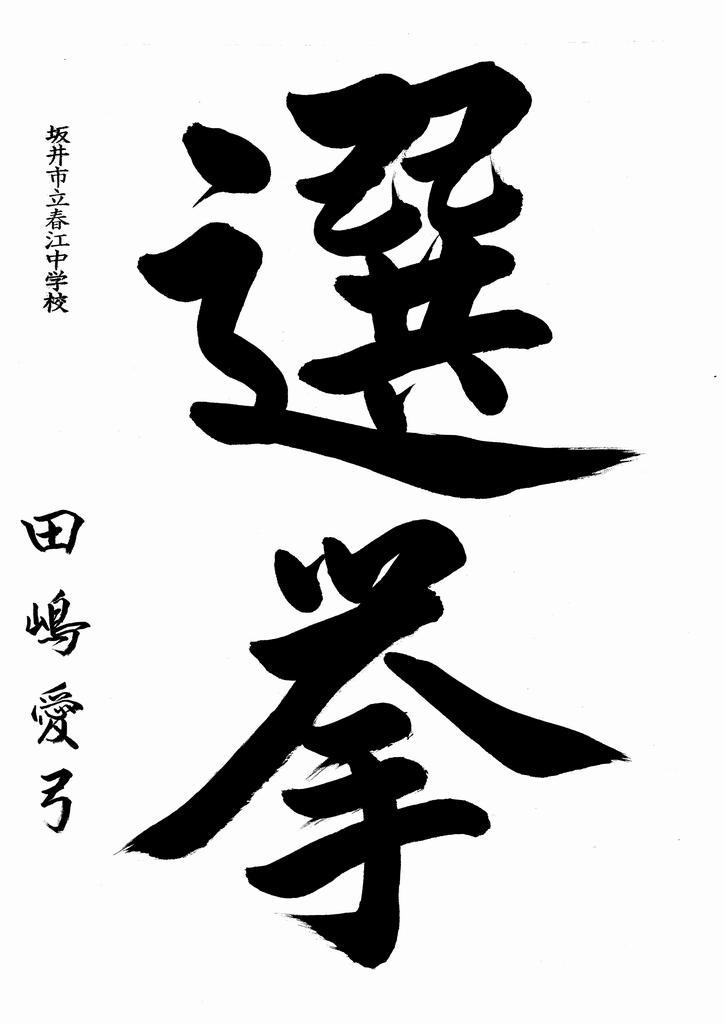 選挙
坂井市立春江中学校
田嶋愛弓